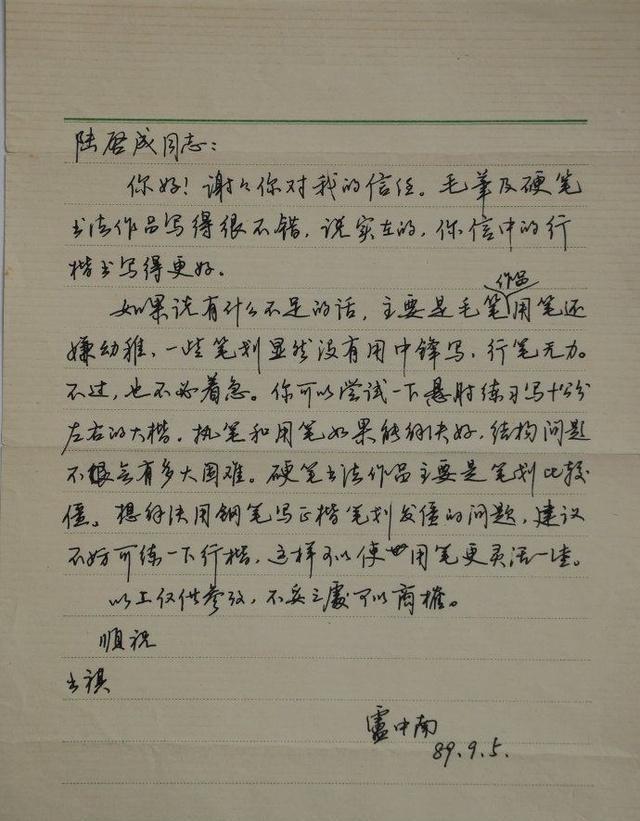 陆启成同志：
你好！谢谢你对我的信任。毛笔及硬笔
书法作品写得很不错，说实在的，你信中的行
楷书写得更好。
作品
如果说有什么不足的话，主要是毛笔用笔还
嫌幼稚，一些笔划显然没有用中锋写，行笔无力。
不过，也不必着急。你可以尝试一下悬肘练习写十公分
左右的大楷。执笔和用笔如果能解决好，结构问题
不会有多大困难。硬笔书法作品主要是笔划比较
僵。想解决用钢笔写正楷笔划发僵的问题，建议
不妨可练一下行楷，这样可以使用笔更灵活一些。
以上仅供参考，不妥之处可以商榷。
顺祝
书祺
卢中南
89.9.5.